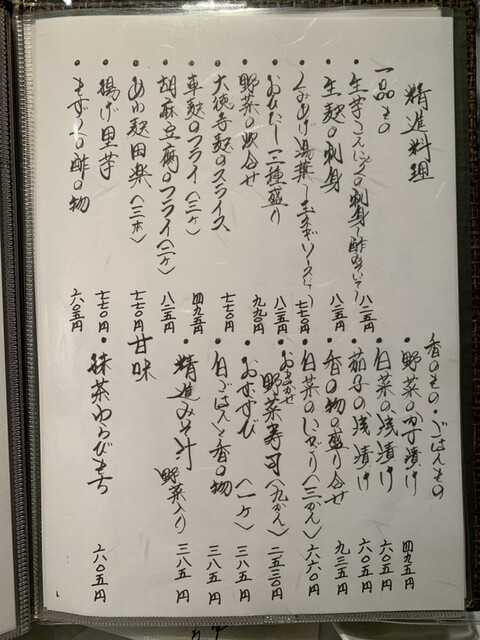 精進料理
一品もの
・生芋こんにゃくの刺身〜酢みそ〜 八二五円
・生麸の刺身 八二五円
・くみあげ湯葉 七七〇円
・おひたし 三種盛り 八二五円
・野菜の炊合せ 九九〇円
・大徳寺麸のスライス 七七〇円
・車麸のフライ（三ヶ） 四九五円
・胡麻豆腐のフライ（一ヶ） 八二五円
・あわ麸田楽（三本） 七七〇円
・揚げ里芋 七七〇円
・もずくの酢の物 六〇五円
香のもの・ごはんもの
・野菜のからし漬け 四九五円
・白菜の浅漬け 六〇五円
・茄子の浅漬け 六〇五円
・香の物の盛り合せ 九三五円
・白菜のにぎり（三かん） 六六〇円
・おまかせ野菜寿司（九かん） 二五三〇円
・おむすび（一ヶ） 三八五円
・白ごはんと香の物 三八五円
・精進みそ汁 野菜入り 三八五円
甘味
・抹茶わらびもち 六〇五円